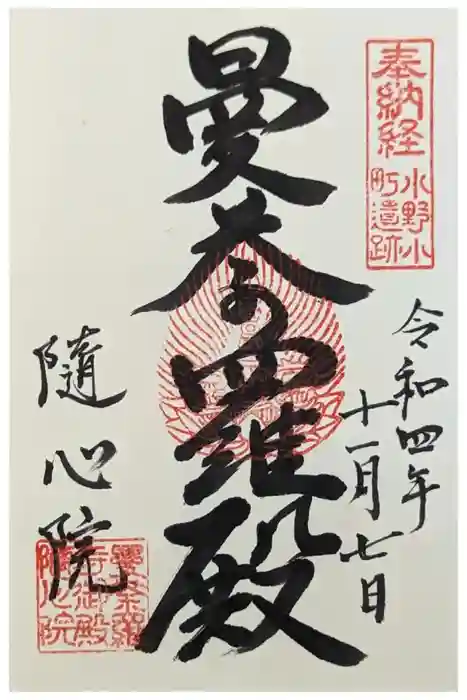 奉納経
小野小
町遺跡
令和四年
十一月七日
曼荼羅殿
隨心院
曼荼羅
寺御殿
隨心院